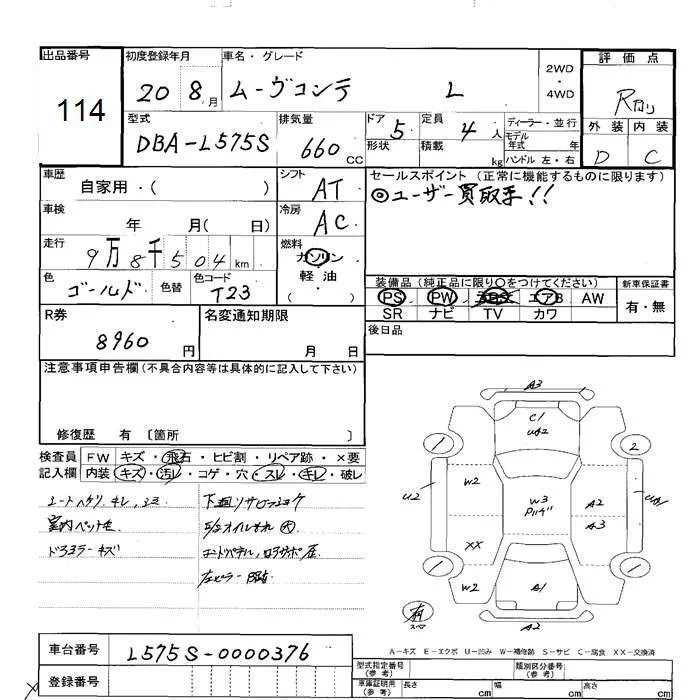 出品番号
114
初度登録年月
20 8 月
車名・グレード
ムーヴコンテ L
2WD
・
4WD
評価点
R
外装 内装
D C
型式
DBA-L575S
排気量
660 CC
ドア 5
形状
定員 4 人
積載 kg
ディーラー・並行
モデル年式 年
ハンドル 左・右
車歴
自家用・( )
シフト
AT
セールスポイント (正常に機能するものに限ります)
◎ユーザー買取車!!
車検
年 月( 日)
冷房
AC
走行
9万8千504km
燃料
ガソリン
軽油
( )
色
ゴールド
色替
色コード
T23
装備品 (純正品に限り○をつけてください)
PS PW エアB AW
SR ナビ TV カワ
新車保証書
有・無
後日品
R券
8960 円
名変通知期限
月 日
注意事項申告欄(不具合内容等は具体的に記入して下さい)
修復歴 有 〔箇所 〕
検査員記入欄
FW キズ・飛石・ヒビ割・リペア跡・×要
内装 キズ・汚レ・コゲ・穴・スレ・キレ・破レ
シートヘタリ、キレ、シミ
下廻リサビ
E/Gオイルモレ 大
A3
C1
U42
1
2
W2
U2
W3
A2
A3
XX
W2
A1
1
1
A2
有
スペア
A-キズ E-エクボ U-凹み W-補修跡 S-サビ C-腐食 XX-交換済
車台番号
L575S-0000376
登録番号
型式指定番号
(参考)
類別区分番号
(参考)
車庫証明用
(参考)
長さ cm
幅 cm
高さ cm